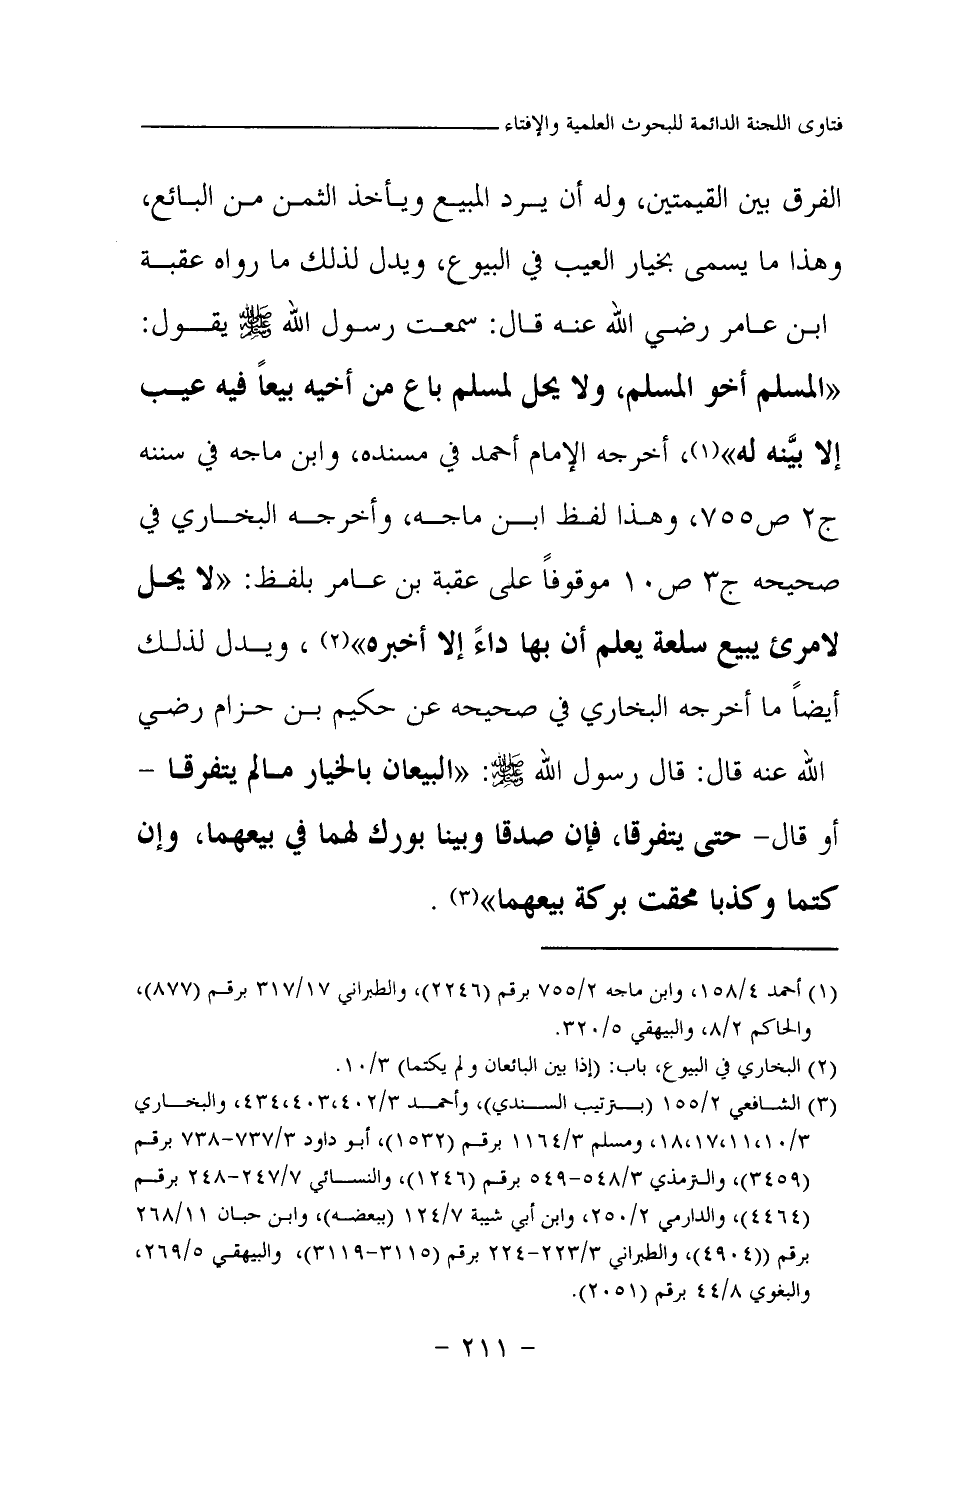 فتاوى اللجنة الدائمة للبحوث العلمية والإفتاء
الفرق بين القيمتين، وله أن يرد المبيع ويأخذ الثمن من البائع،
وهذا ما يسمى بخيار العيب في البيوع، ويدل لذلك ما رواه عقبة
ابن عامر رضي الله عنه قال: سمعت رسول الله ﷺ يقول:
«المسلم أخو المسلم، ولا يحل لمسلم باع من أخيه بيعاً فيه عيب
إلا بيَّنه له»(١)، أخرجه الإمام أحمد في مسنده، وابن ماجه في سننه
ج٢ ص٧٥٥، وهذا لفظ ابن ماجه، وأخرجه البخاري في
صحيحه ج٣ ص١٠ موقوفاً على عقبة بن عامر بلفظ: «لا يحل
لامرئ يبيع سلعة يعلم أن بها داءً إلا أخبره»(٢) ، ويدل لذلك
أيضاً ما أخرجه البخاري في صحيحه عن حكيم بن حزام رضي
الله عنه قال: قال رسول الله ﷺ: «البيعان بالخيار مالم يتفرقا –
أو قال– حتى يتفرقا، فإن صدقا وبينا بورك لهما في بيعهما، وإن
كتما وكذبا محقت بركة بيعهما»(٣) .
(١) أحمد ١٥٨/٤، وابن ماجه ٧٥٥/٢ برقم (٢٢٤٦)، والطبراني ٣١٧/١٧ برقم (٨٧٧)،
والحاكم ٨/٢، والبيهقي ٣٢٠/٥.
(٢) البخاري في البيوع، باب: (إذا بين البائعان ولم يكتما) ١٠/٣.
(٣) الشافعي ١٥٥/٢ (بترتيب السندي)، وأحمد ٤٠٢/٣،٤٠٣،٤٣٤، والبخاري
١٠/٣،١١،١٧،١٨، ومسلم ١١٦٤/٣ برقم (١٥٣٢)، أبو داود ٧٣٧/٣–٧٣٨ برقم
(٣٤٥٩)، والترمذي ٥٤٨/٣–٥٤٩ برقم (١٢٤٦)، والنسائي ٢٤٧/٧–٢٤٨ برقم
(٤٤٦٤)، والدارمي ٢٥٠/٢، وابن أبي شيبة ١٢٤/٧ (ببعضه)، وابن حبان ٢٦٨/١١
برقم ((٤٩٠٤)، والطبراني ٢٢٣/٣–٢٢٤ برقم (٣١١٥–٣١١٩)، والبيهقي ٢٦٩/٥،
والبغوي ٤٤/٨ برقم (٢٠٥١).
– ٢١١ –